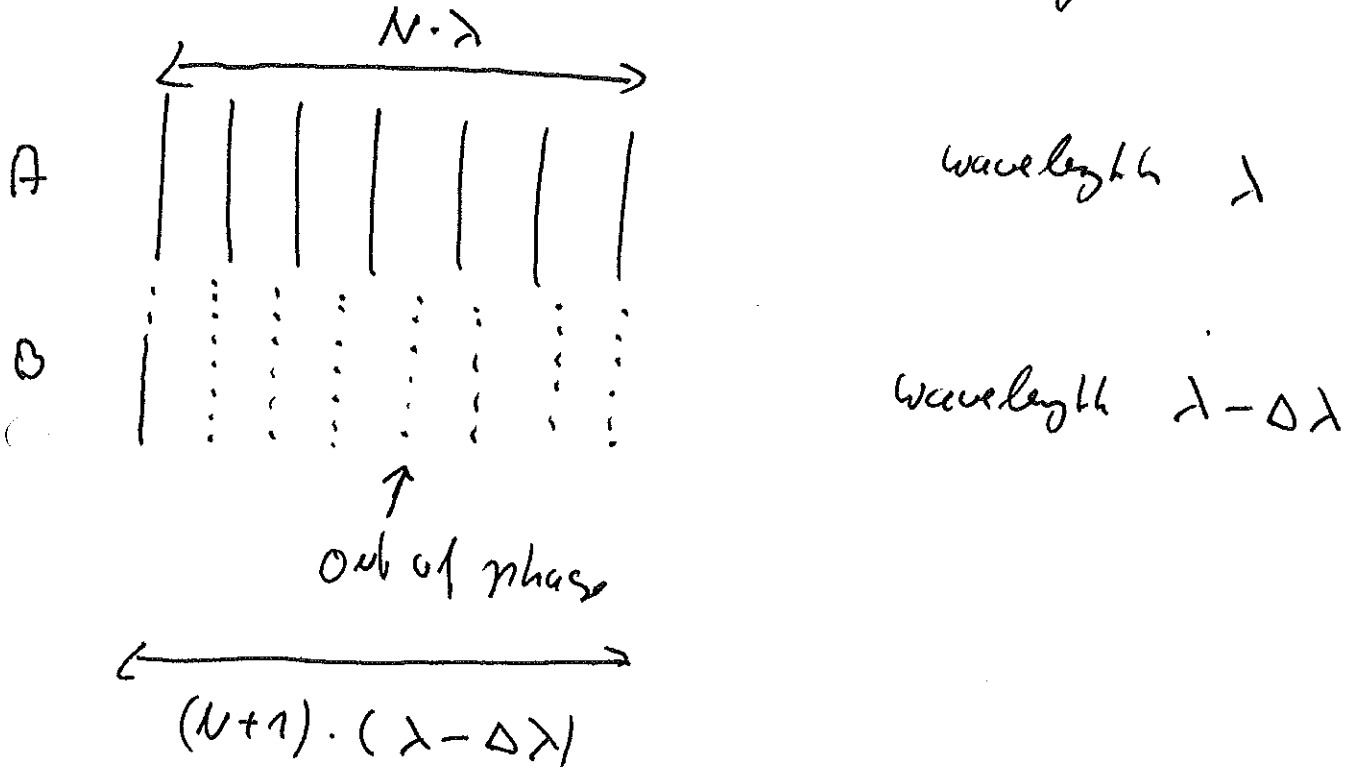 N·λ
A
wavelength λ
B
wavelength λ - Δλ
out of phase
(N+1)·(λ - Δλ)